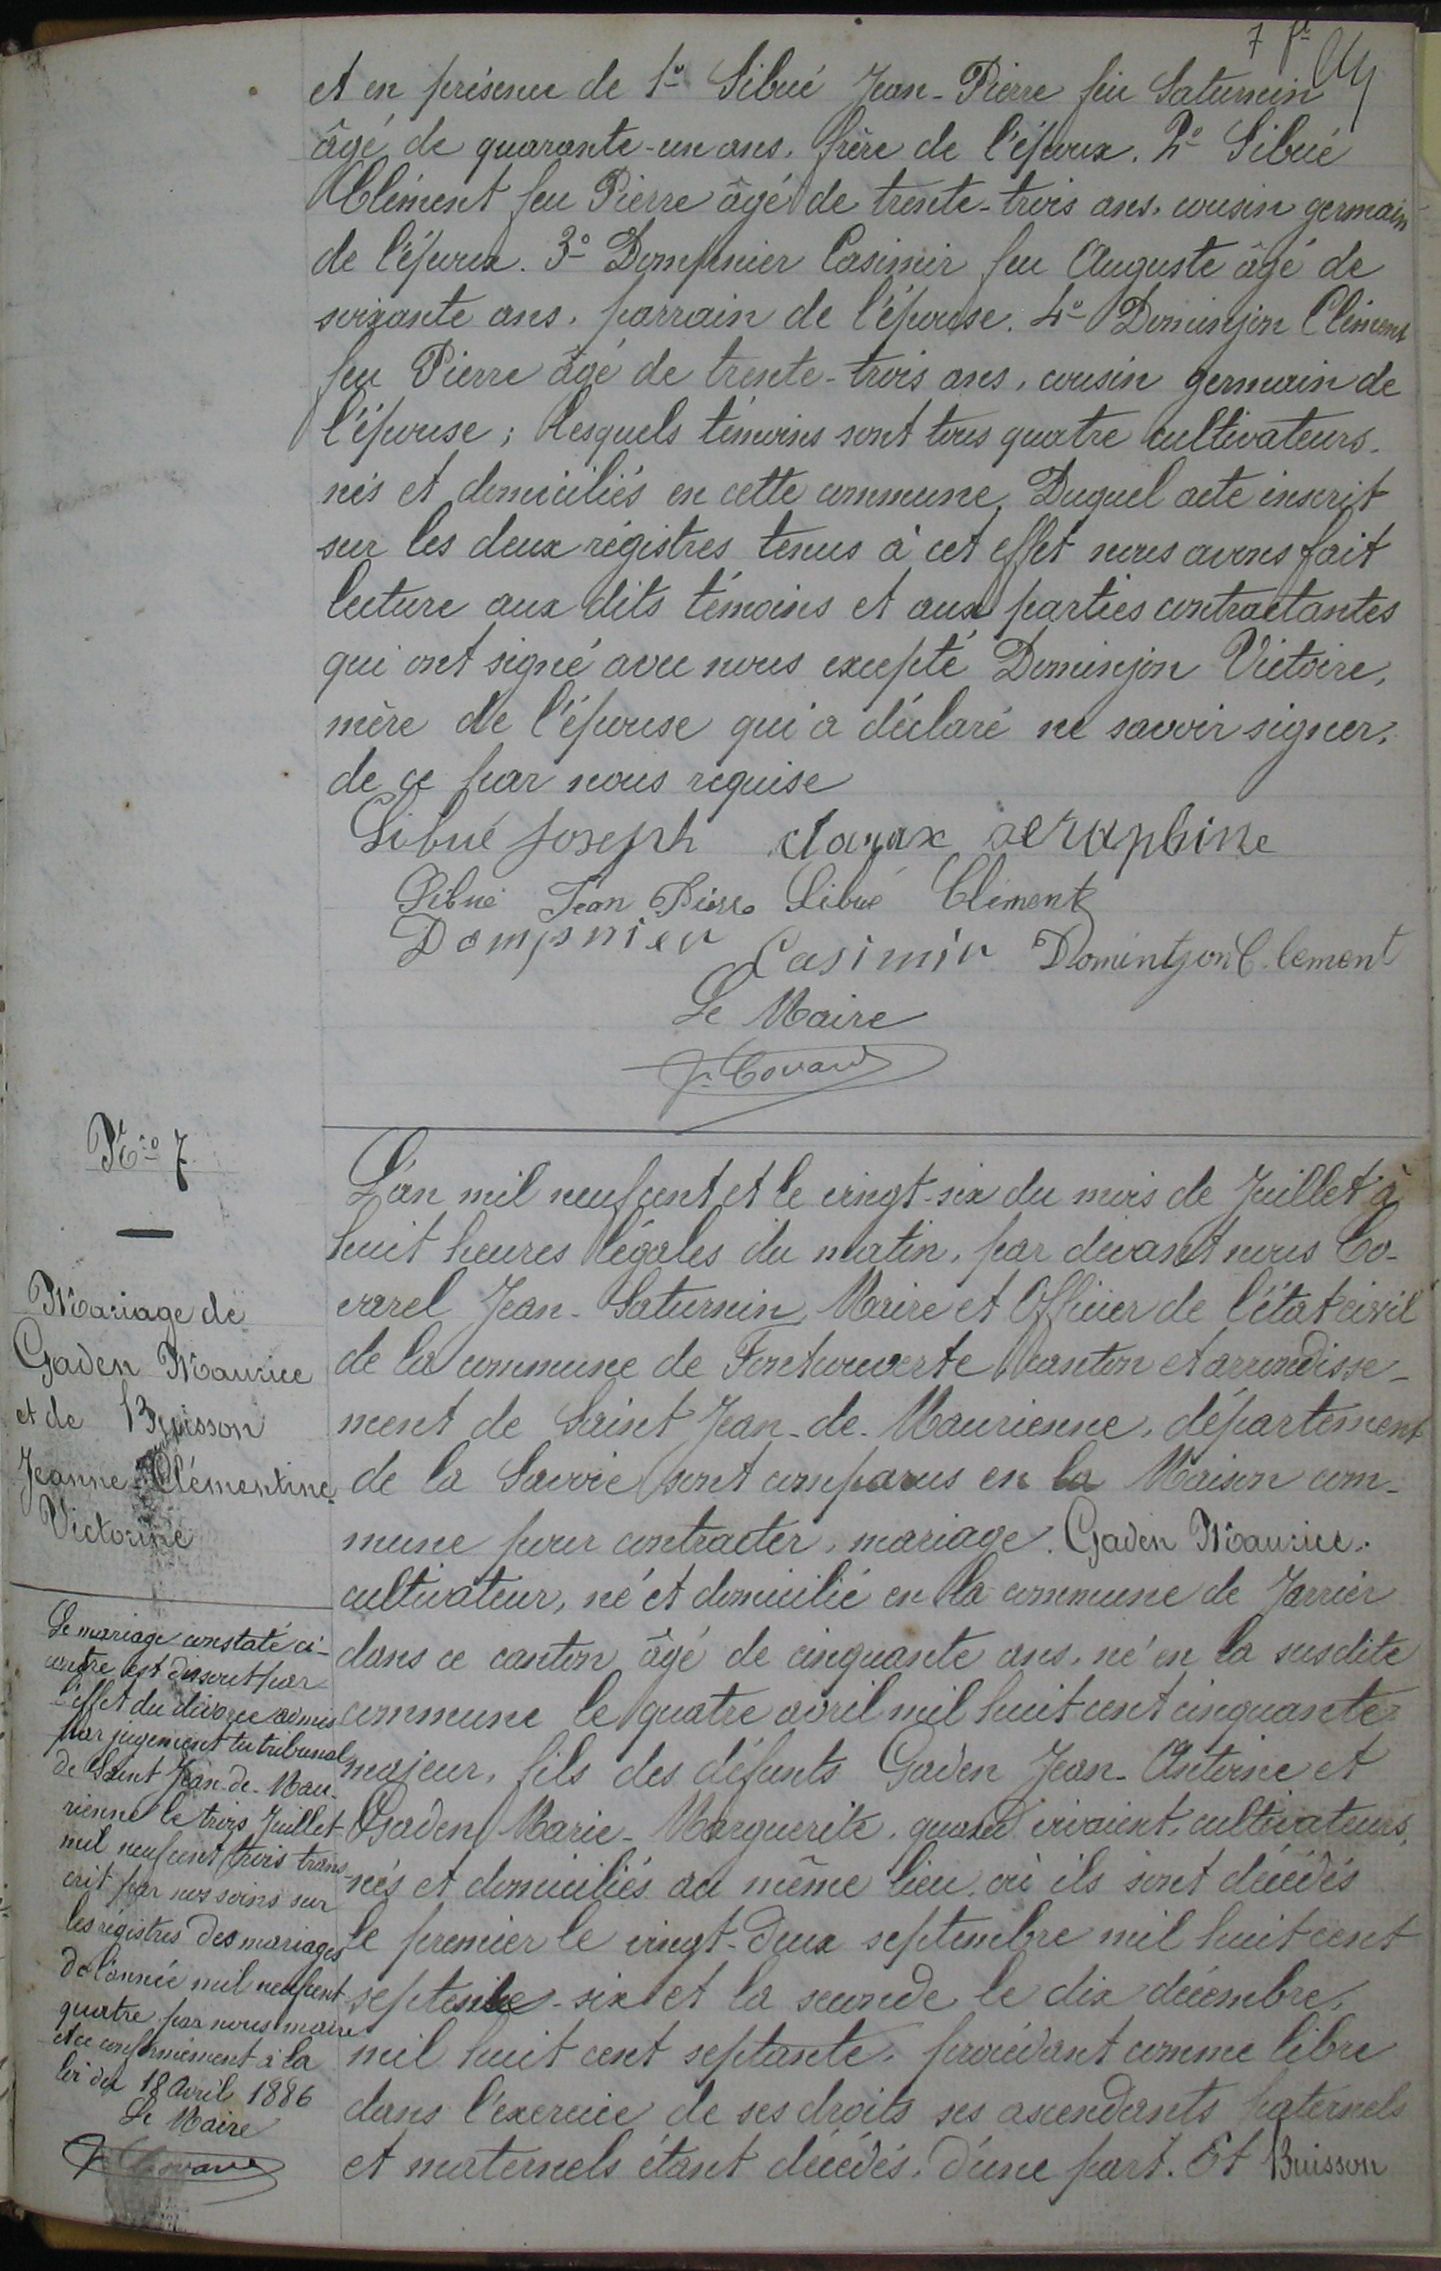 7 ft
et en présence de 1º Sibué Jean-Pierre feu Saturnin
âgé de quarante-un ans, frère de l'époux. 2º Sibué
Clément feu Pierre âgé de trente-trois ans, cousin germain
de l'époux. 3º Dompnier Casimir feu Auguste âgé de
soixante ans, parrain de l'épouse. 4º Dominjon Clément
feu Pierre âgé de trente-trois ans, cousin germain de
l'épouse ; lesquels témoins sont tous quatre cultivateurs
nés et domiciliés en cette commune. Duquel acte inscrit
sur les deux régistres tenus à cet effet nous avons fait
lecture aux dits témoins et aux parties contractantes
qui ont signé avec nous excepté Dominjon Victoire,
mère de l'épouse qui a déclaré ne savoir signer,
de ce par nous requise
Sibué Joseph clarax seraphine
Sibué Jean Pierre Sibué Clément
Dompnier Casimir Domintjon Clement
Le Maire
Nº 7
Mariage de
Gaden Maurice
et de Buisson
Jeanne Clémentine
Victorine
Le mariage constaté ci-
contre est dissout par
l'effet du divorce admis
par jugement du tribunal
de Saint Jean-de-Mau-
rienne le trois Juillet
mil neuf cent trois trans-
crit par nos soins sur
les régistres des mariages
de l'année mil neuf cent
quatre par nous maire
et ce conformément à la
loi du 18 Avril 1886
Le Maire
L'an mil neuf cent et le vingt-six du mois de Juillet à
huit heures légales du matin, par devant nous Co-
varel Jean-Saturnin, Maire et Officier de l'état civil
de la commune de Fontcouverte canton et arrondisse-
ment de Saint Jean-de-Maurienne, département
de la Savoie sont comparus en la Maison com-
mune pour contracter mariage. Gaden Maurice,
cultivateur, né et domicilié en la commune de Jarrier
dans ce canton âgé de cinquante ans, né en la susdite
commune le quatre avril mil huit cent cinquante
majeur, fils des défunts Gaden Jean-Antoine et
Gaden Marie-Marguerite, quand vivaient, cultivateurs,
nés et domiciliés au même lieu, où ils sont décédés
le premier le vingt-deux septembre mil huit cent
septente-six et la seconde le dix décembre,
mil huit cent septante, procédant comme libre
dans l'exercice de ses droits ses ascendants paternels
et maternels étant décédés, d'une part. Et Buisson